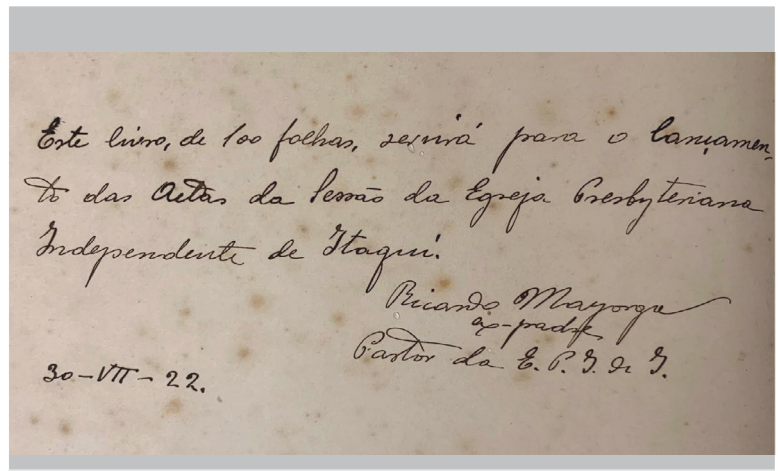 Este livro, de 100 folhas, servirá para o lançamen-
to das Actas da Sessão da Egreja Presbyteriana
Independente de Itaqui.
Ricardo Mayorga
ex-padre
Pastor da E. P. I. de I.
30-VII-22.